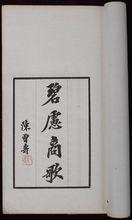 碧慮商歌
陳曾壽